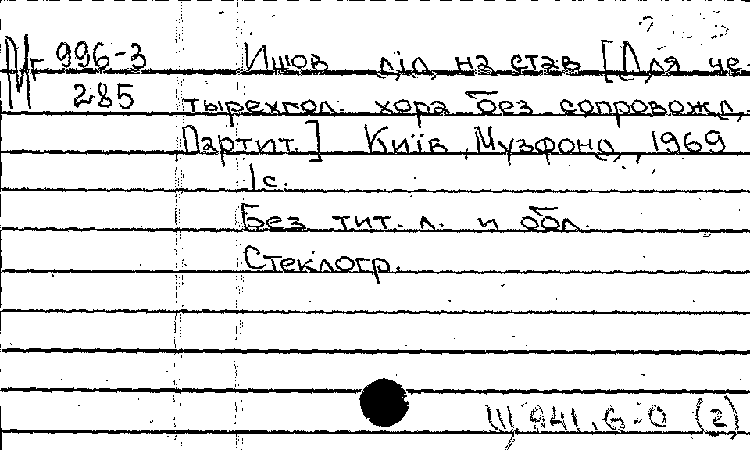 Миг 996-3 Ишов дід на став [Для че-
285 тырехгол. хора без сопровожд.
Партит.] Київ, Музфонд, 1969
1с.
Без тит. л. и обл.
Стеклогр.
(2)